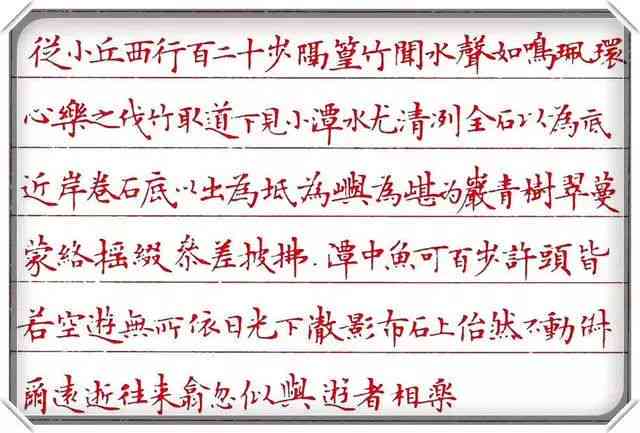 從小丘西行百二十步隔篁竹聞水聲如鳴珮環
心樂之伐竹取道下見小潭水尤清洌全石以為底
近岸卷石底以出為坻為嶼為嵁為巖青樹翠蔓
蒙絡摇綴參差披拂.潭中魚可百步許頭皆
若空遊無所依日光下澈影布石上佁然不動俶
爾遠逝往来翕忽似與遊者相楽